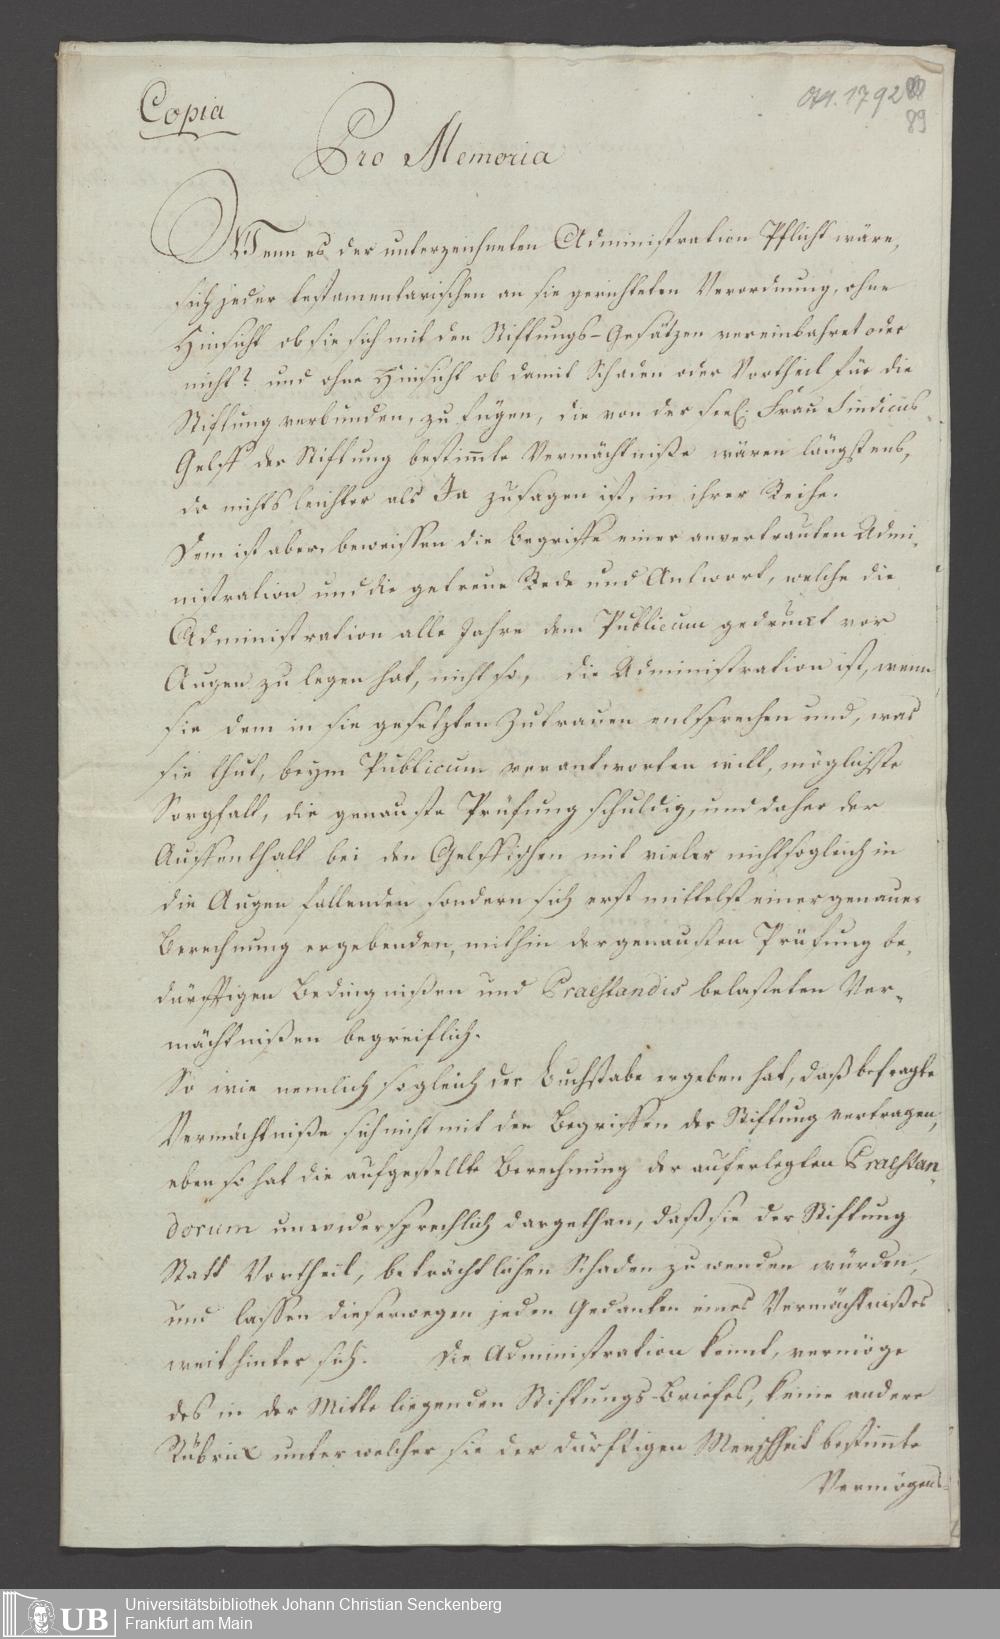 Copia
Ao. 1792
89
Pro Memoria
Wenn es der unterzeichneten Administration Pflicht wäre,
sich jeder testamentarischen an sie gerichteten Verordnung, ohne
Hinsicht ob sie sich mit den Stiftungs-Gesätzen vereinbahret oder
nicht? und ohne Hinsicht ob damit Schaden oder Vortheil für die
Stiftung verbunden, zu fügen, die von der seel. Frau Sindicus
Gelff der Stiftung bestimmte Vermächtniße wären längstens,
da nichts leichter als Ja zusagen ist, in ihrer Reihe.
Dem ist aber, beweissen die begriffe einer anvertrauten Admi-
nistration und die getreue Rede und Antwort, welche die
Administration alle Jahre dem Publicum gedruckt vor
Augen zu legen hat, nicht so, die Administration ist, wenn
sie dem in sie gesetzten Zutrauen entsprechen und, was
sie thut, beym Publicum verantworten will, möglichste
Sorgfalt, die genauste Prüfung schuldig, und daher der
Auffenthalt bei den Gelffischen mit vieler nicht sogleich in
die Augen fallenden sondern sich erst mittelst einer genauer
Berechnung ergebenden, mithin der genausten Prüfung be-
dürfftigen Bedingnißen und Praestandis belasteten Ver-
mächtnißen begreiflich.
So wie nemlich sogleich der Buchstabe ergeben hat, daß befragte
Vermächtniße sich nicht mit den Begriffen der Stiftung vertragen,
eben so hat die aufgestellte Berechnung der auferlegten Praestan-
dorum unwidersprechlich dargethan, daß sie der Stiftung
Statt Vortheil, beträchtlichen Schaden zu wenden würden,
und lassen dieserwegen jeden Gedanken eines Vermächtnißes
weit hinter sich. Die Administration kennt, vermöge
des in der Mitte liegenden Stiftungs-Briefes, keine andere
Rubric unter welcher sie der dürftigen Menschheit bestimmte
Vermögens-
UB
Universitätsbibliothek Johann Christian Senckenberg
Frankfurt am Main